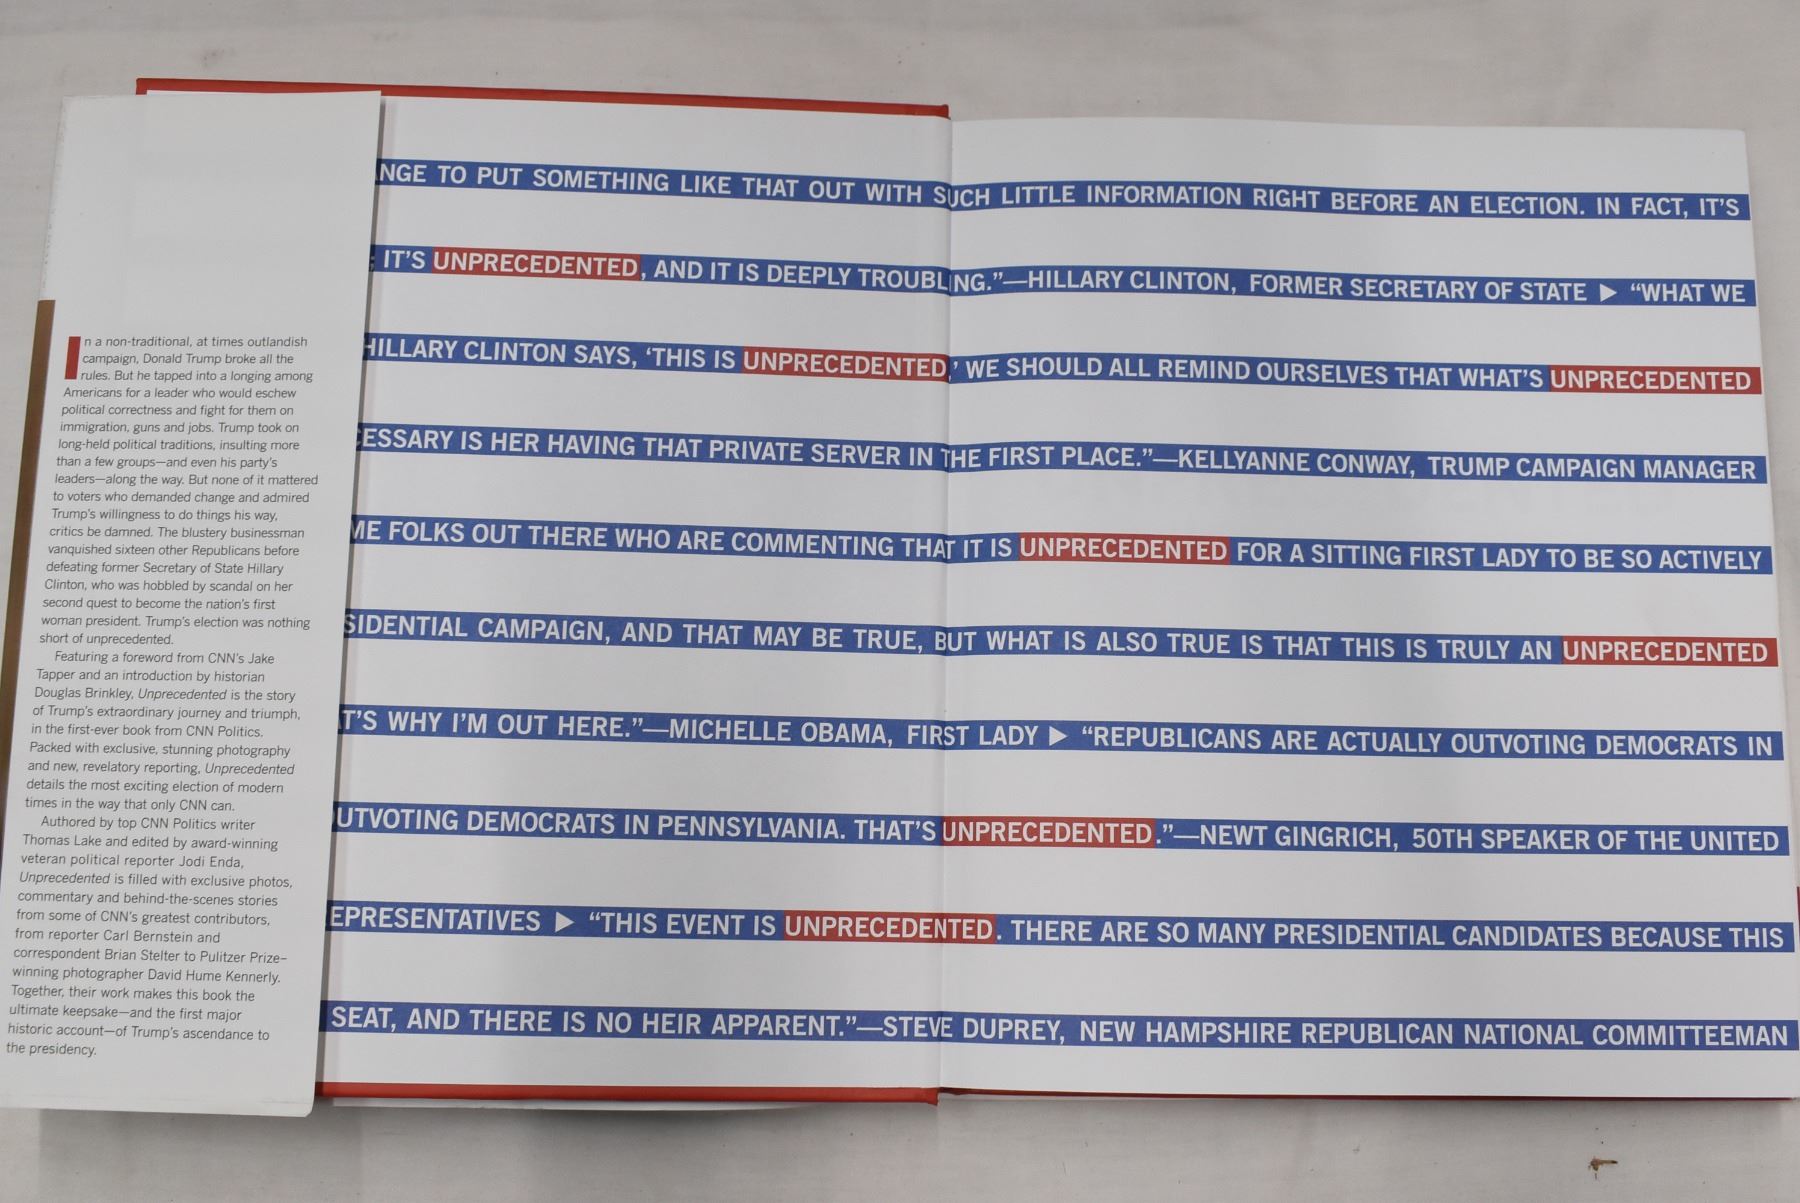 In a non-traditional, at times outlandish
campaign, Donald Trump broke all the
rules. But he tapped into a longing among
Americans for a leader who would eschew
political correctness and fight for them on
immigration, guns and jobs. Trump took on
long-held political traditions, insulting more
than a few groups—and even his party's
leaders—along the way. But none of it mattered
to voters who demanded change and admired
Trump's willingness to do things his way,
critics be damned. The blustery businessman
vanquished sixteen other Republicans before
defeating former Secretary of State Hillary
Clinton, who was hobbled by scandal on her
second quest to become the nation's first
woman president. Trump's election was nothing
short of unprecedented.
Featuring a foreword from CNN's Jake
Tapper and an introduction by historian
Douglas Brinkley, Unprecedented is the story
of Trump's extraordinary journey and triumph,
in the first-ever book from CNN Politics.
Packed with exclusive, stunning photography
and new, revelatory reporting, Unprecedented
details the most exciting election of modern
times in the way that only CNN can.
Authored by top CNN Politics writer
Thomas Lake and edited by award-winning
veteran political reporter Jodi Enda,
Unprecedented is filled with exclusive photos,
commentary and behind-the-scenes stories
from some of CNN's greatest contributors,
from reporter Carl Bernstein and
correspondent Brian Stelter to Pulitzer Prize–
winning photographer David Hume Kennerly.
Together, their work makes this book the
ultimate keepsake—and the first major
historic account—of Trump's ascendance to
the presidency.
NGE TO PUT SOMETHING LIKE THAT OUT WITH SUCH LITTLE INFORMATION RIGHT BEFORE AN ELECTION. IN FACT, IT'S
; IT'S UNPRECEDENTED, AND IT IS DEEPLY TROUBLING."—HILLARY CLINTON, FORMER SECRETARY OF STATE ▶ "WHAT WE
HILLARY CLINTON SAYS, 'THIS IS UNPRECEDENTED,' WE SHOULD ALL REMIND OURSELVES THAT WHAT'S UNPRECEDENTED
CESSARY IS HER HAVING THAT PRIVATE SERVER IN THE FIRST PLACE."—KELLYANNE CONWAY, TRUMP CAMPAIGN MANAGER
ME FOLKS OUT THERE WHO ARE COMMENTING THAT IT IS UNPRECEDENTED FOR A SITTING FIRST LADY TO BE SO ACTIVELY
SIDENTIAL CAMPAIGN, AND THAT MAY BE TRUE, BUT WHAT IS ALSO TRUE IS THAT THIS IS TRULY AN UNPRECEDENTED
T'S WHY I'M OUT HERE."—MICHELLE OBAMA, FIRST LADY ▶ "REPUBLICANS ARE ACTUALLY OUTVOTING DEMOCRATS IN
OUTVOTING DEMOCRATS IN PENNSYLVANIA. THAT'S UNPRECEDENTED."—NEWT GINGRICH, 50TH SPEAKER OF THE UNITED
EPRESENTATIVES ▶ "THIS EVENT IS UNPRECEDENTED. THERE ARE SO MANY PRESIDENTIAL CANDIDATES BECAUSE THIS
SEAT, AND THERE IS NO HEIR APPARENT."—STEVE DUPREY, NEW HAMPSHIRE REPUBLICAN NATIONAL COMMITTEEMAN